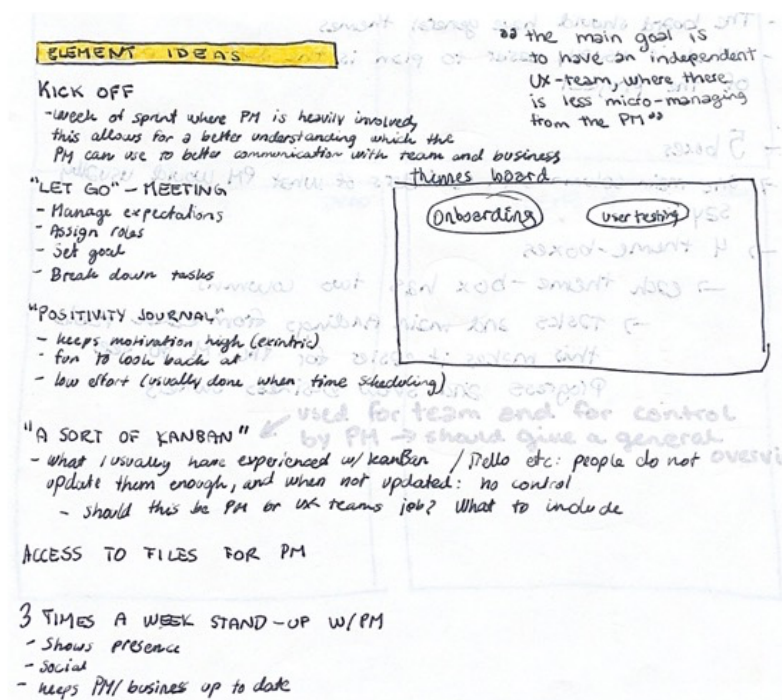 ELEMENT IDEAS
"the main goal is
to have an independent
UX-team, where there
is less micro-managing
from the PM"
KICK OFF
-week of sprint where PM is heavily involved,
this allows for a better understanding which the
PM can use to better communication with team and business
"LET GO" - MEETING
- Manage expectations
- Assign roles
- Set goal
- Break down tasks
themes board
Onboarding
user testing
"POSITIVITY JOURNAL"
- keeps motivation high (exintric)
- fun to look back at
- low effort (usually done when time scheduling)
"A SORT OF KANBAN"
used for team and for control
by PM → should give a general
overvi
- What I usually have experienced w/ kanban / Trello etc: people do not
update them enough, and when not updated: no control
- should this be PM or UX teams job? What to include
ACCESS TO FILES FOR PM
3 TIMES A WEEK STAND-UP W/PM
- Shows presence
- Social
- keeps PM/busines up to date